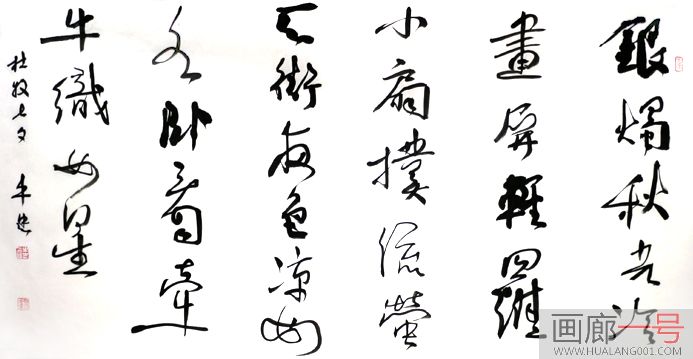 銀燭秋光冷
畫屏輕羅
小扇撲流螢
天街夜色涼如
水卧看牽
牛織女星
杜牧七夕
画廊一号
WWW.HUALANG001.COM